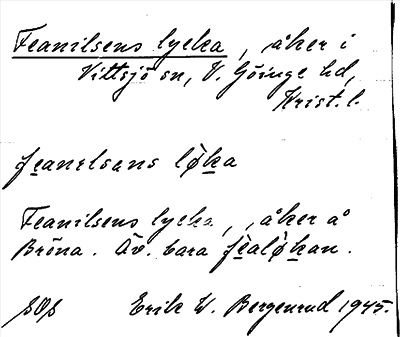 Feanilsens lycka, åker i
Vittsjö sn, V. Göinge hd,
Krist. l.
feanelsans løka
Feanilsens lycka, åker å
Bröna. Äv. bara fealøkan.
SOS Erik W. Bergenrud 1945.